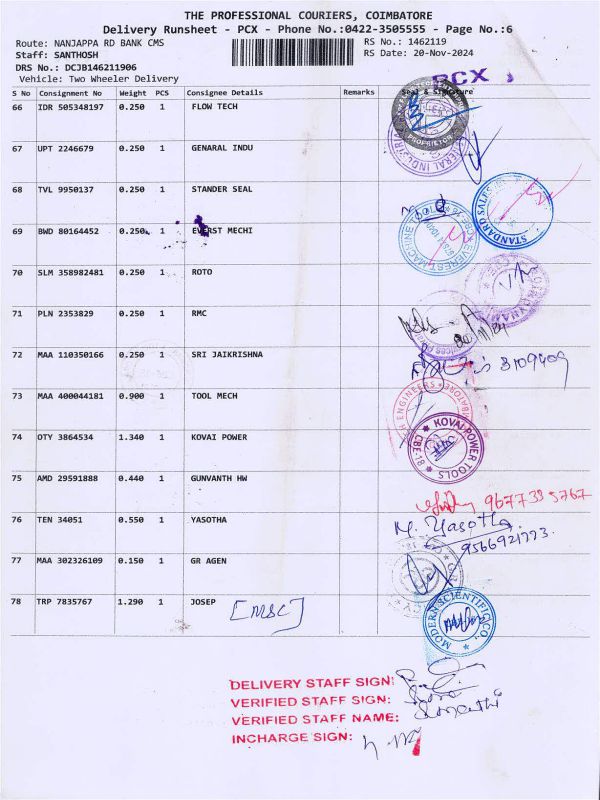 THE PROFESSIONAL COURIERS, COIMBATORE
Delivery Runsheet - PCX - Phone No.:0422-3505555 - Page No.:6
Route: NANJAPPA RD BANK CMS RS No.: 1462119
Staff: SANTHOSH RS Date: 20-Nov-2024
DRS No.: DCJB146211906
Vehicle: Two Wheeler Delivery PCX
S No Consignment No Weight PCS Consignee Details Remarks Seal & Signature
66 IDR 505348197 0.250 1 FLOW TECH
PROPRIETOR
67 UPT 2246679 0.250 1 GENARAL INDU
68 TVL 9950137 0.250 1 STANDER SEAL
STANDARD SALES
69 BWD 80164452 0.250 1 EVERST MECHI
EVEREST MACHINE TOOLS
70 SLM 358982481 0.250 1 ROTO
71 PLN 2353829 0.250 1 RMC
72 MAA 110350166 0.250 1 SRI JAIKRISHNA
73 MAA 400044181 0.900 1 TOOL MECH
ENGINEERS
74 OTY 3864534 1.340 1 KOVAI POWER
KOVAI POWER TOOLS
75 AMD 29591888 0.440 1 GUNVANTH HW
76 TEN 34051 0.550 1 YASOTHA
M. Yasotha
77 MAA 302326109 0.150 1 GR AGEN
78 TRP 7835767 1.290 1 JOSEP [MSC]
MODERN SCIENTIFIC CO.
DELIVERY STAFF SIGN:
VERIFIED STAFF SIGN:
VERIFIED STAFF NAME:
INCHARGE SIGN: